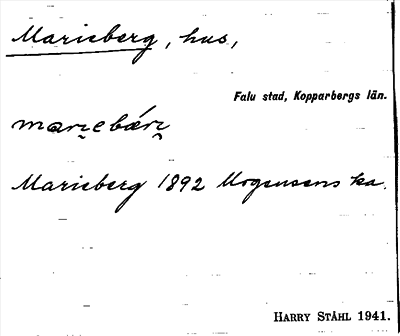 Marieberg, hus,
Falu stad, Kopparbergs län.
marıebærı
Marieberg 1892 Mogensens ka.
HARRY STÅHL 1941.